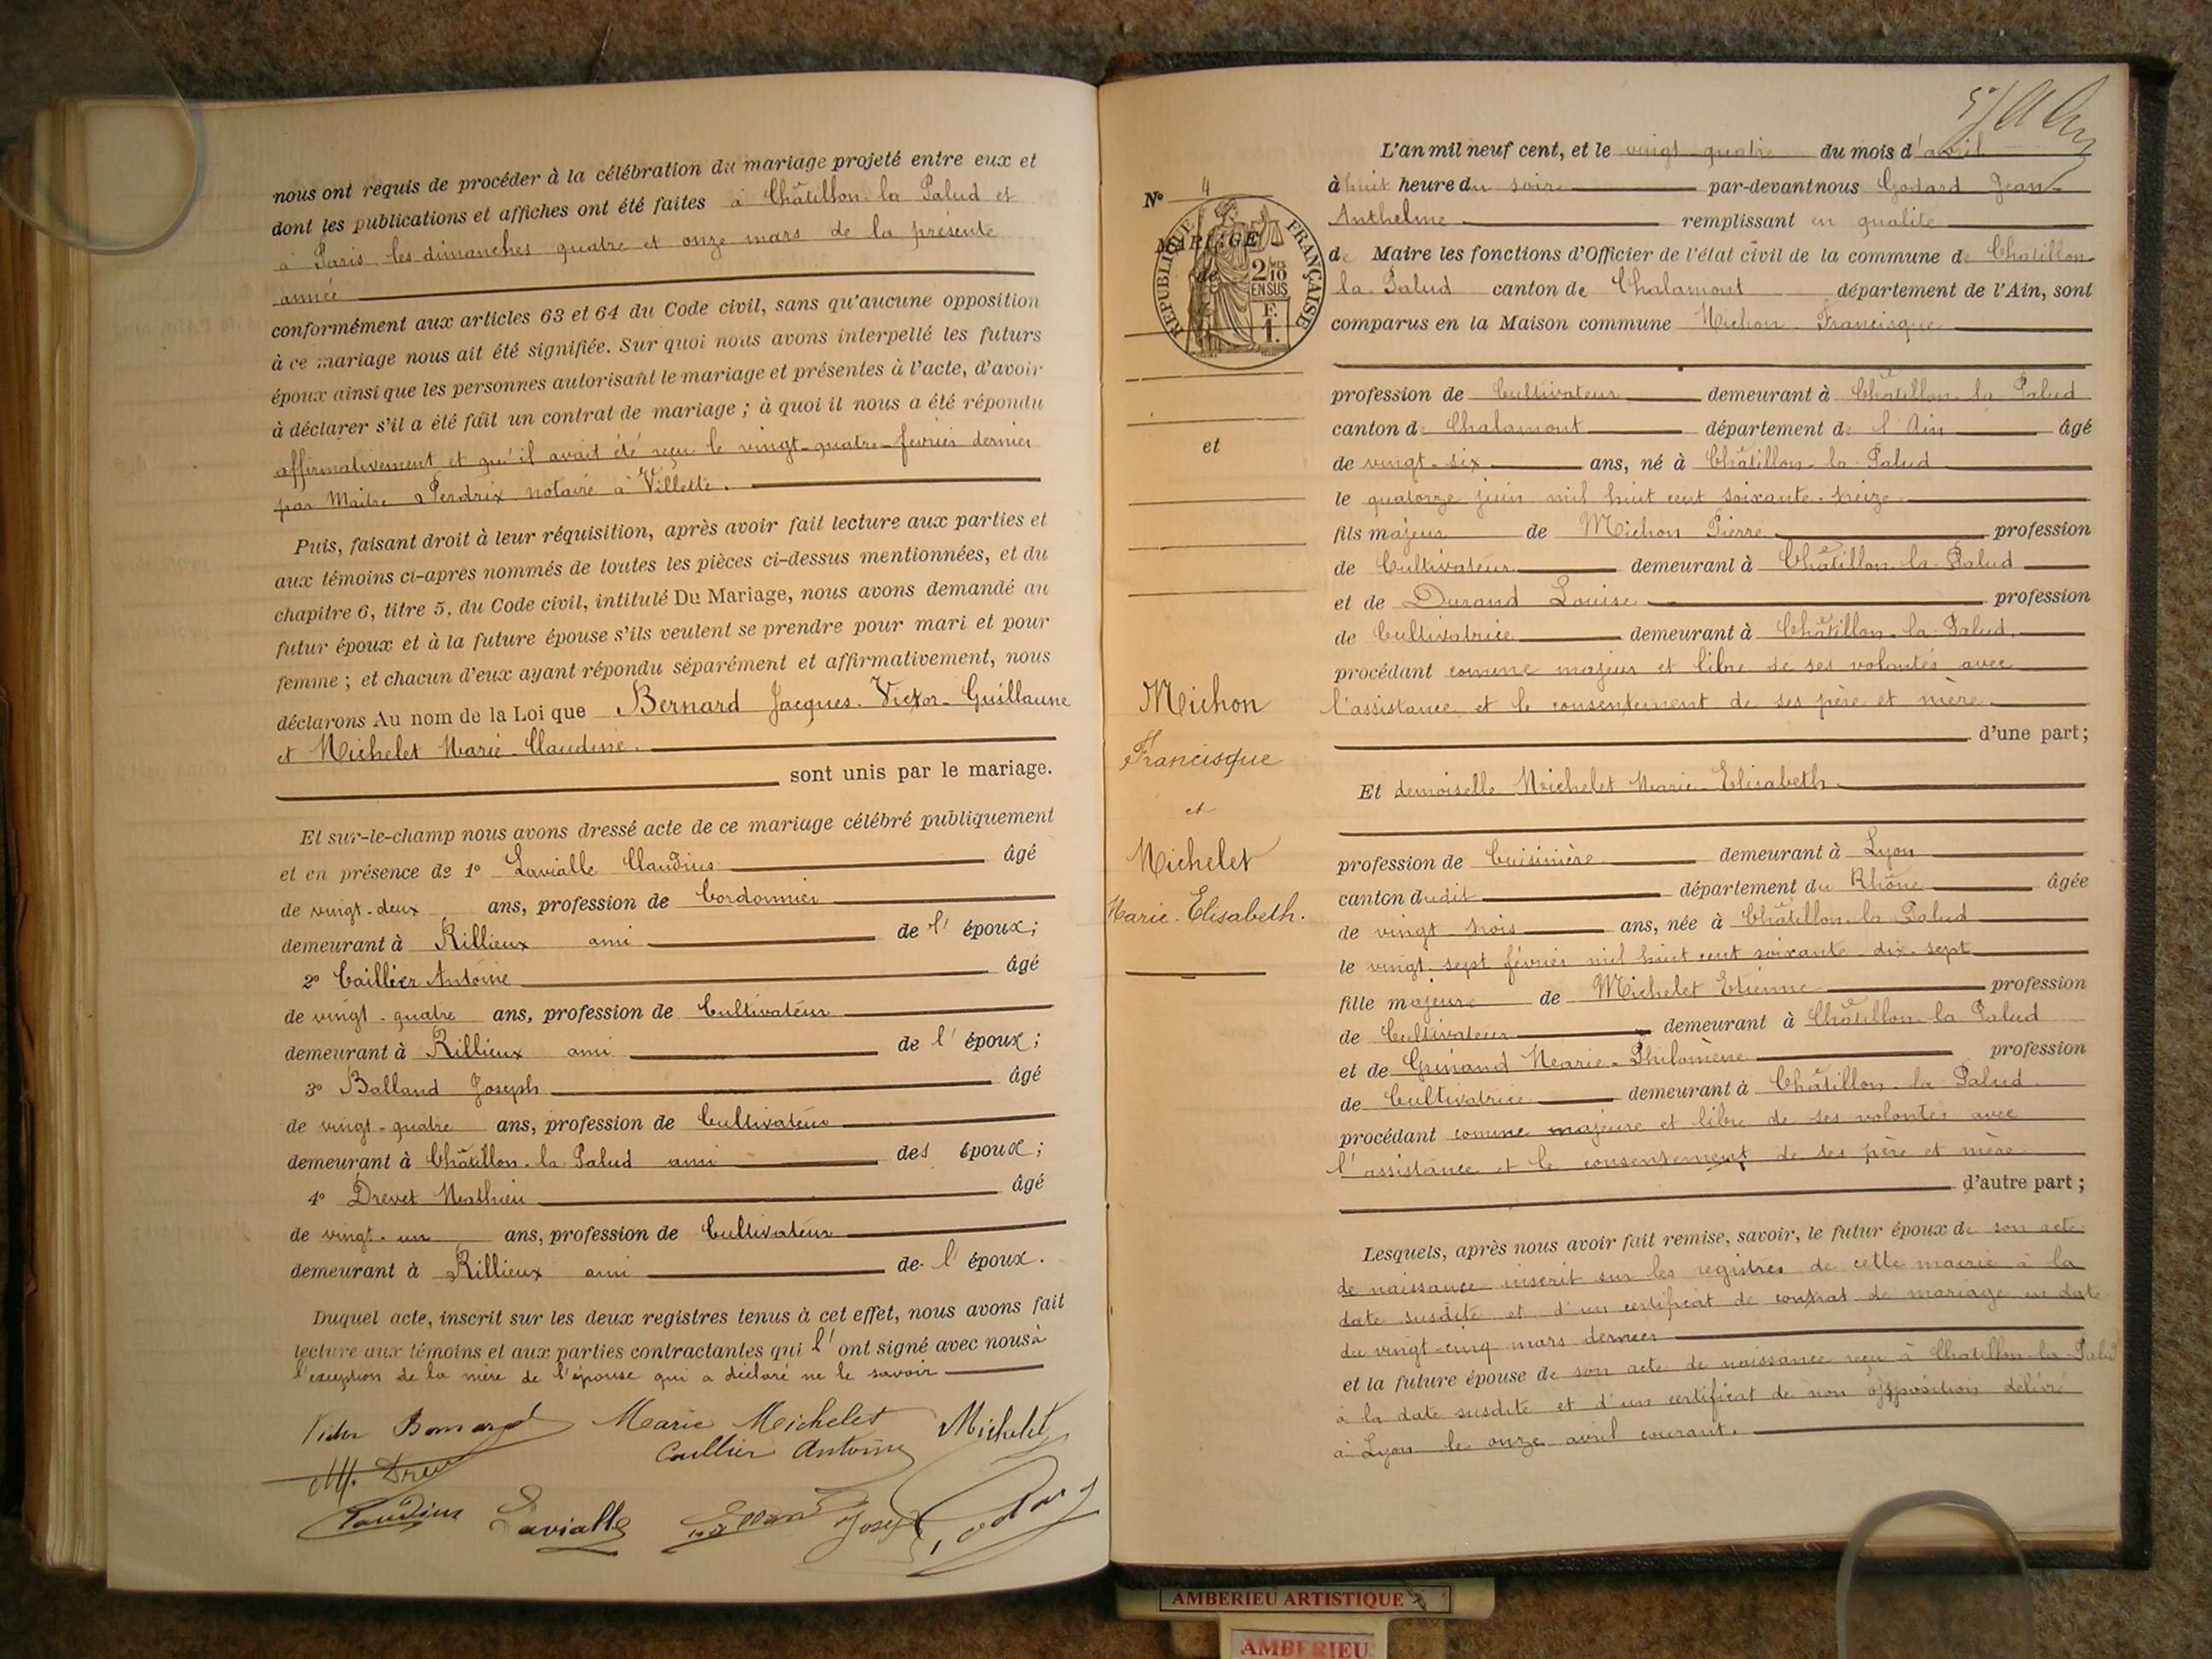 nous ont requis de procéder à la célébration du mariage projeté entre eux et
dont les publications et affiches ont été faites à Châtillon-la Palud et
à Paris les dimanches quatre et onze mars de la présente
année
conformément aux articles 63 et 64 du Code civil, sans qu'aucune opposition
à ce mariage nous ait été signifiée. Sur quoi nous avons interpellé les futurs
époux ainsi que les personnes autorisant le mariage et présentes à l'acte, d'avoir
à déclarer s'il a été fait un contrat de mariage ; à quoi il nous a été répondu
affirmativement et qu'il avait été reçu le vingt-quatre février dernier
par Maître Perdrix notaire à Villette.
Puis, faisant droit à leur réquisition, après avoir fait lecture aux parties et
aux témoins ci-après nommés de toutes les pièces ci-dessus mentionnées, et du
chapitre 6, titre 5, du Code civil, intitulé Du Mariage, nous avons demandé au
futur époux et à la future épouse s'ils veulent se prendre pour mari et pour
femme ; et chacun d'eux ayant répondu séparément et affirmativement, nous
déclarons Au nom de la Loi que Bernard Jacques-Victor-Guillaume
et Michelet Marie-Claudine.
sont unis par le mariage.
Et sur-le-champ nous avons dressé acte de ce mariage célébré publiquement
et en présence de 1° Lavialle Claudius âgé
de vingt-deux ans, profession de Cordonnier
demeurant à Rillieux ami de l' époux ;
2° Caillier Antoine âgé
de vingt-quatre ans, profession de Cultivateur
demeurant à Rillieux ami de l' époux ;
3° Balland Joseph âgé
de vingt-quatre ans, profession de Cultivateur
demeurant à Châtillon-la Palud ami des époux ;
4° Drevet Mathieu âgé
de vingt-un ans, profession de Cultivateur
demeurant à Rillieux ami de l' époux.
Duquel acte, inscrit sur les deux registres tenus à cet effet, nous avons fait
lecture aux témoins et aux parties contractantes qui l' ont signé avec nous à
l'exception de la mère de l'épouse qui a déclaré ne le savoir
Marie Michelet Michelet
Caillier Antoine
Claudius Lavialle Joseph
N° 4
MARIAGE
de
RÉPUBLIQUE FRANÇAISE
2/10 MES
EN SUS
F.
1.
et
Michon
Francisque
et
Michelet
Marie-Elisabeth.
L'an mil neuf cent, et le vingt-quatre du mois d'avril
à huit heure du soir par-devant nous Godard Jean-
Anthelme remplissant en qualité
de Maire les fonctions d'Officier de l'état civil de la commune de Chatillon
la-Palud canton de Chalamont département de l'Ain, sont
comparus en la Maison commune Michon Francisque
profession de Cultivateur demeurant à Châtillon-la Palud
canton de Chalamont département de l'Ain âgé
de vingt-six ans, né à Châtillon-la-Palud
le quatorze juin mil huit cent soixante-treize
fils majeur de Michon Pierre profession
de Cultivateur demeurant à Châtillon-la-Palud
et de Durand Louise profession
de Cultivatrice demeurant à Châtillon-la-Palud.
procédant comme majeur et libre de ses volontés avec
l'assistance et le consentement de ses père et mère
d'une part;
Et demoiselle Michelet Marie-Elisabeth
profession de Cuisinière demeurant à Lyon
canton dudit département du Rhône âgée
de vingt-trois ans, née à Châtillon-la-Palud
le vingt-sept février mil huit cent soixante-dix-sept
fille majeure de Michelet Etienne profession
de Cultivateur demeurant à Châtillon-la Palud
et de Marie-Philomène profession
de Cultivatrice demeurant à Châtillon-la Palud.
procédant comme majeure et libre de ses volontés avec
l'assistance et le consentement de ses père et mère
d'autre part ;
Lesquels, après nous avoir fait remise, savoir, le futur époux de son acte
de naissance inscrit sur les registres de cette mairie à la
date susdite et d'un certificat de contrat de mariage en date
du vingt-cinq mars dernier
et la future épouse de son acte de naissance reçu à Chatillon-la-Palud
à la date susdite et d'un certificat de non opposition délivré
à Lyon le onze avril courant.
AMBERIEU ARTISTIQUE
AMBERIEU